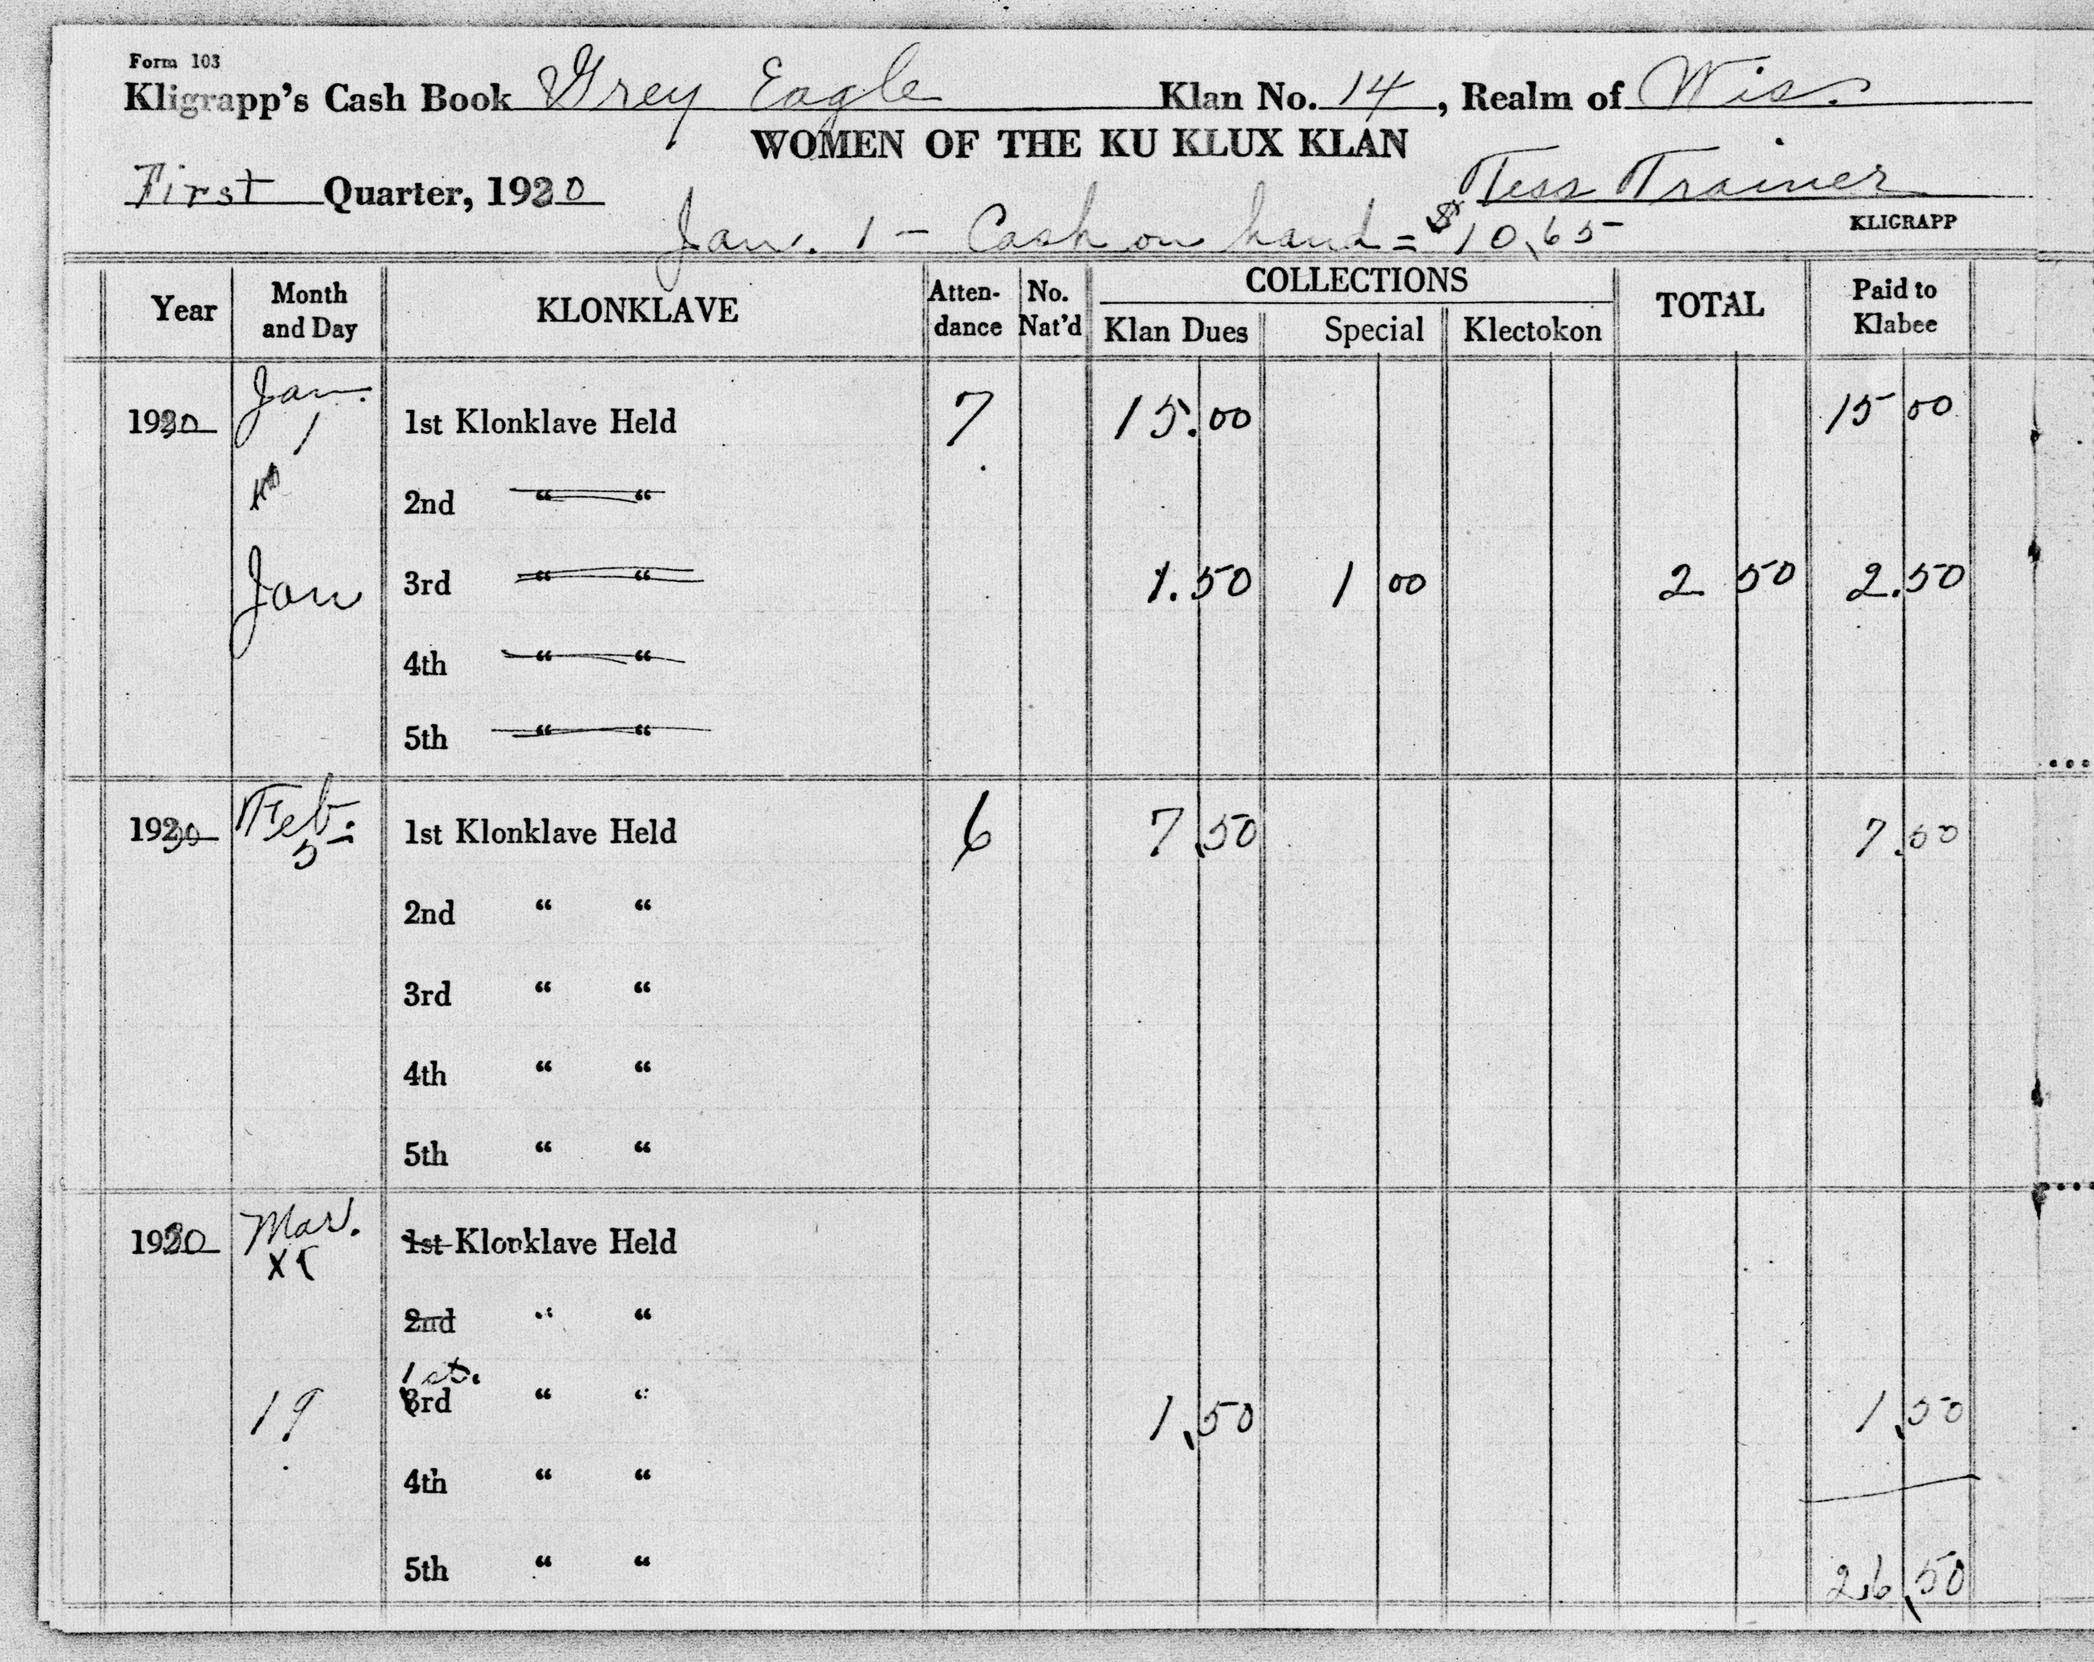 Form 103
Kligrapp's Cash Book Grey Eagle Klan No. 14, Realm of Wis.
WOMEN OF THE KU KLUX KLAN
First Quarter, 1930 Tess Trainer
KLIGRAPP
Jan. 1 - Cash on hand = $10.65
Year Month and Day KLONKLAVE Attendance No. Nat'd COLLECTIONS TOTAL Paid to Klabee
Klan Dues Special Klectokon
1930 Jan. 1 1st Klonklave Held 7 15.00 15 00
2nd “ “
Jan 3rd “ “ 1.50 1 00 2 50 2.50
4th “ “
5th “ “
1930 Feb. 5 1st Klonklave Held 6 7.50 7.50
2nd “ “
3rd “ “
4th “ “
5th “ “
1930 Mar. 1st Klonklave Held
2nd “ “
1st.
19 3rd “ “ 1.50 1.50
4th “ “
5th “ “ 26.50